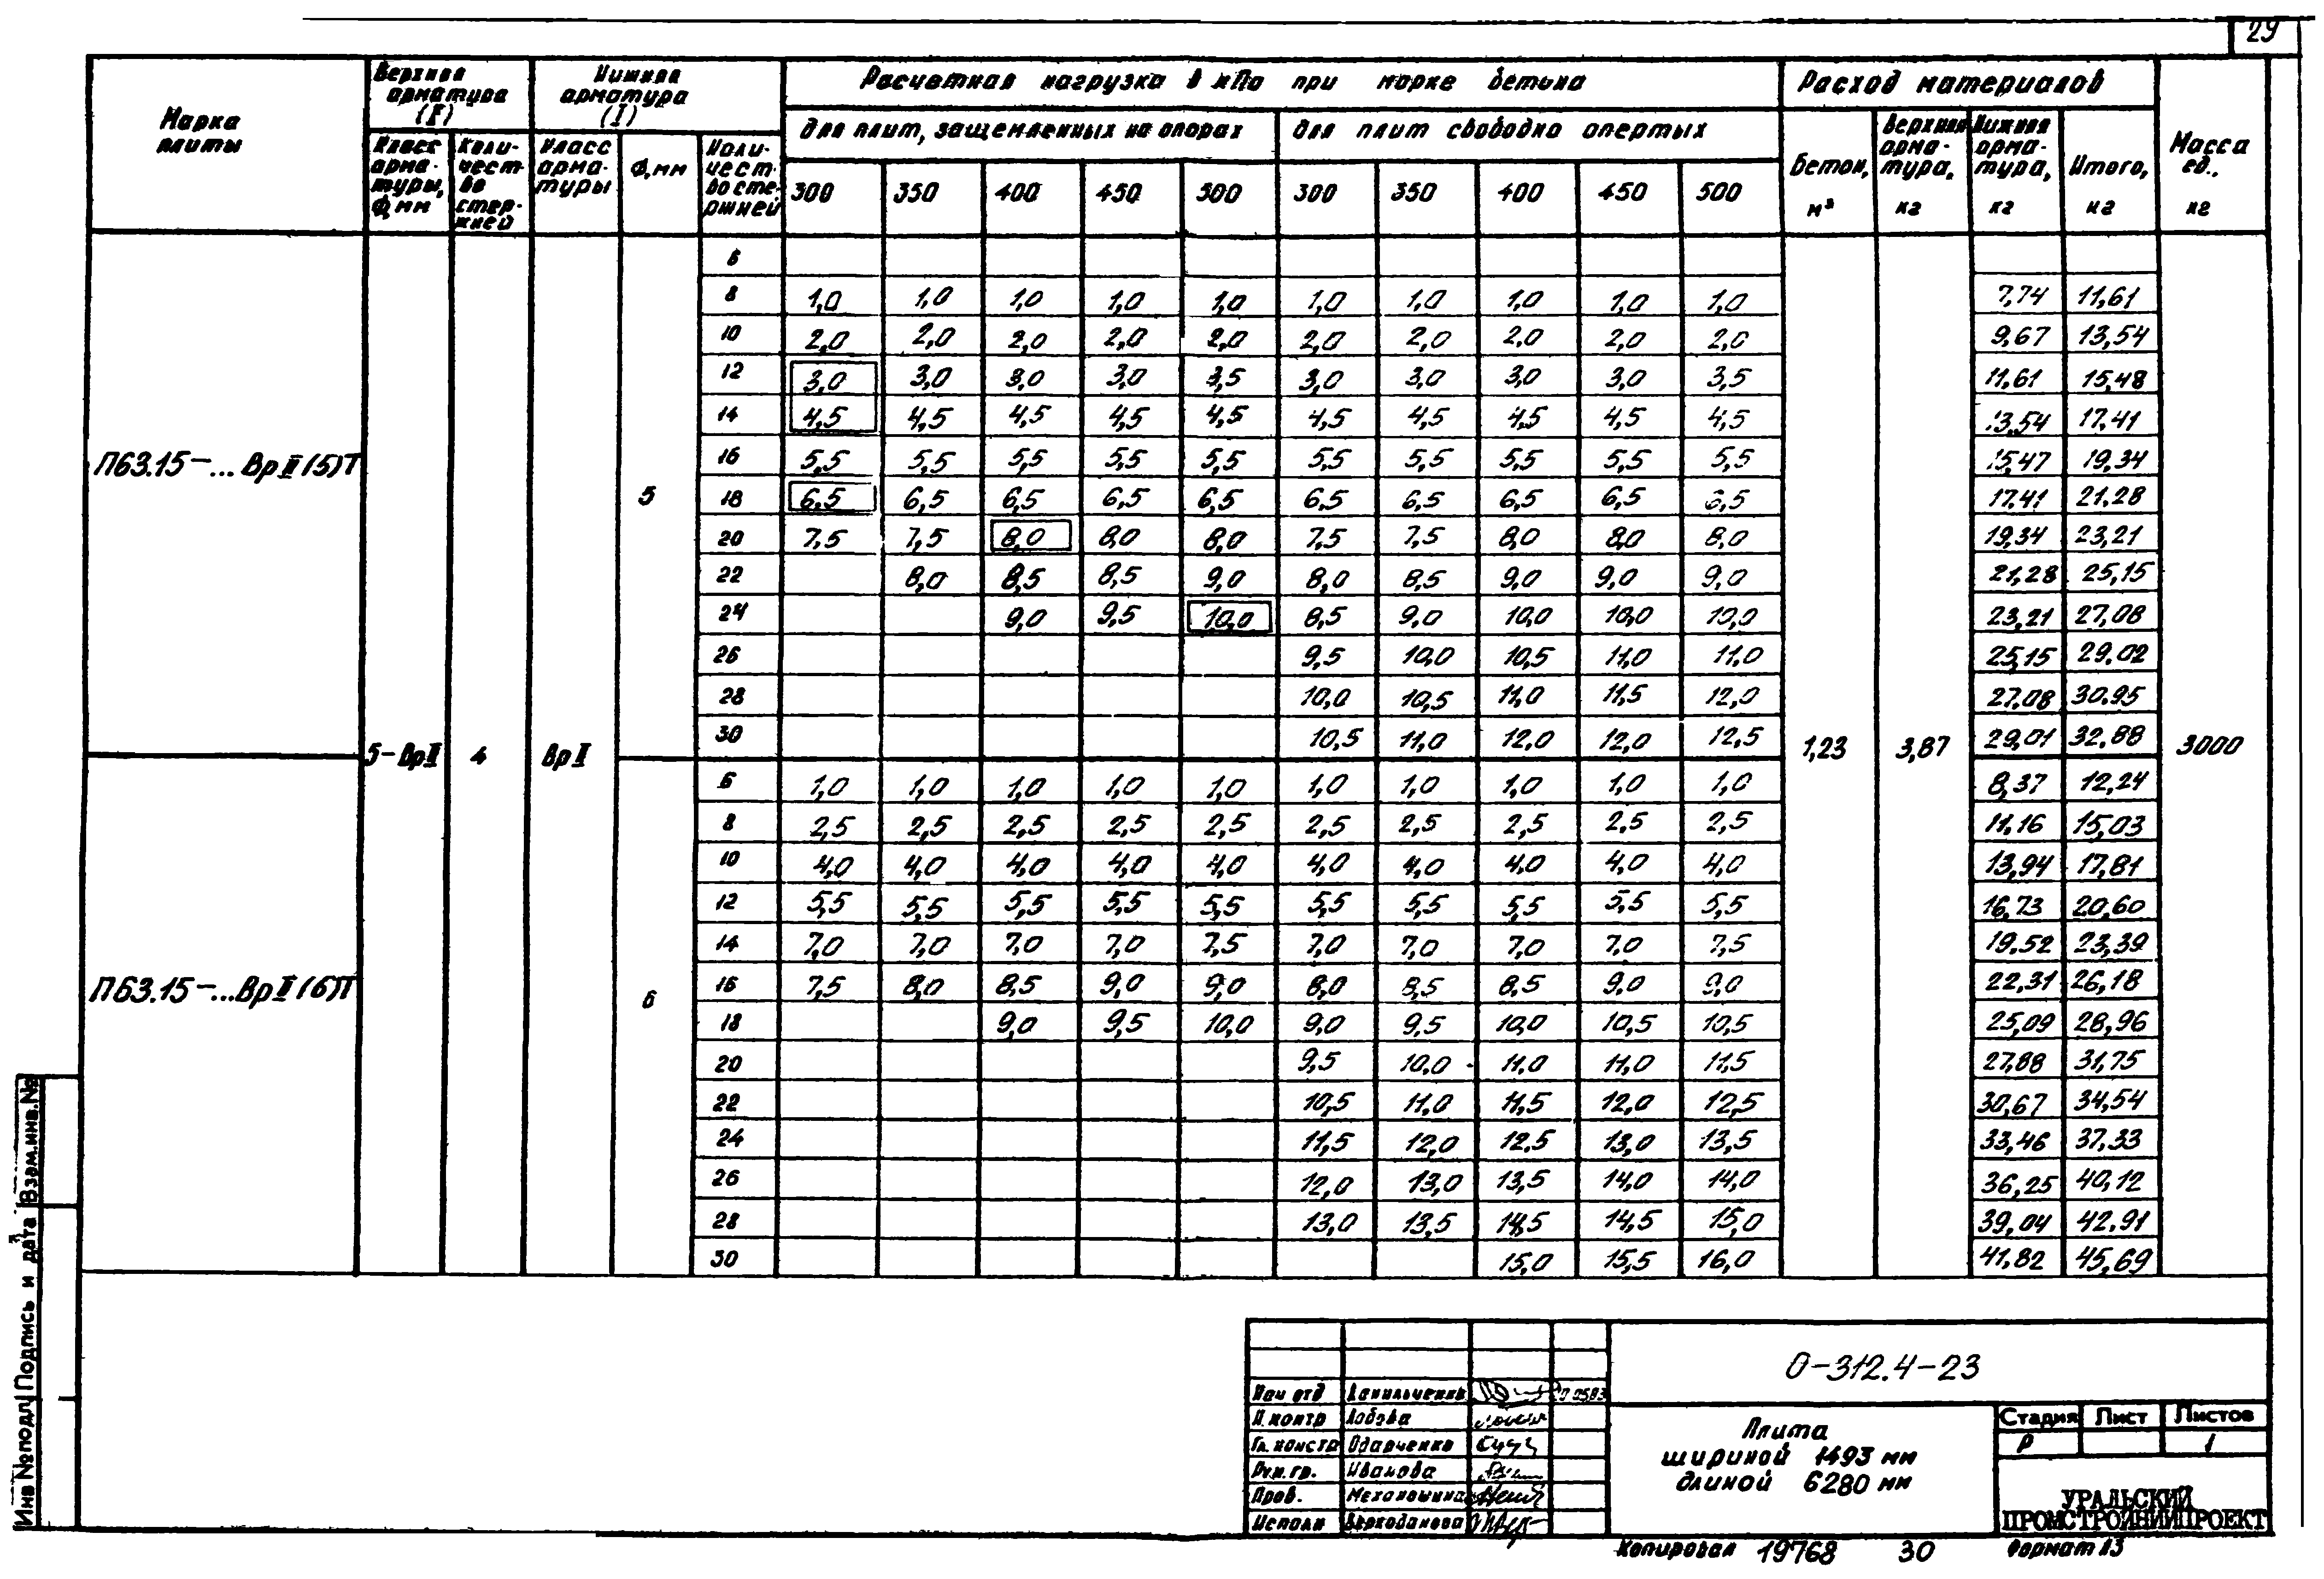 29
Марка плиты
Верхняя арматура (F)
Нижняя арматура (I)
Расчетная нагрузка в кПа при марке бетона
Расход материалов
Масса ед., кг
для плит, защемленных на опорах
для плит свободно опертых
Класс арматуры, Ф, мм
Количество стержней
Класс арматуры
Ф, мм
Количество стержней
300 350 400 450 500 300 350 400 450 500
Бетон, м³
Верхняя арматура, кг
Нижняя арматура, кг
Итого, кг
П63.15–...ВрII(5)Т
5
6
8 1,0 1,0 1,0 1,0 1,0 1,0 1,0 1,0 1,0 1,0 7,74 11,61
10 2,0 2,0 2,0 2,0 2,0 2,0 2,0 2,0 2,0 2,0 9,67 13,54
12 3,0 3,0 3,0 3,0 3,5 3,0 3,0 3,0 3,0 3,5 11,61 15,48
14 4,5 4,5 4,5 4,5 4,5 4,5 4,5 4,5 4,5 4,5 13.54 17,41
16 5,5 5,5 5,5 5,5 5,5 5,5 5,5 5,5 5,5 5,5 15,47 19,34
18 6,5 6,5 6,5 6,5 6,5 6,5 6,5 6,5 6,5 6,5 17,41 21,28
20 7,5 7,5 8,0 8,0 8,0 7,5 7,5 8,0 8,0 8,0 19,34 23,21
22 8,0 8,5 8,5 9,0 8,0 8,5 9,0 9,0 9,0 21,28 25,15
24 9,0 9,5 10,0 8,5 9,0 10,0 10,0 10,0 23,21 27,08
26 9,5 10,0 10,5 11,0 11,0 25,15 29,02
28 10,0 10,5 11,0 11,5 12,0 27,08 30,95
30 10,5 11,0 12,0 12,0 12,5 29,01 32,88
5–ВрII 4 ВрII 1,23 3,87 3000
П63.15–...ВрII(6)Т
6
6 1,0 1,0 1,0 1,0 1,0 1,0 1,0 1,0 1,0 1,0 8,37 12,24
8 2,5 2,5 2,5 2,5 2,5 2,5 2,5 2,5 2,5 2,5 11,16 15,03
10 4,0 4,0 4,0 4,0 4,0 4,0 4,0 4,0 4,0 4,0 13,94 17,81
12 5,5 5,5 5,5 5,5 5,5 5,5 5,5 5,5 5,5 5,5 16,73 20,60
14 7,0 7,0 7,0 7,0 7,5 7,0 7,0 7,0 7,0 7,5 19,52 23,39
16 7,5 8,0 8,5 9,0 9,0 8,0 8,5 8,5 9,0 9,0 22,31 26,18
18 9,0 9,5 10,0 9,0 9,5 10,0 10,5 10,5 25,09 28,96
20 9,5 10,0 11,0 11,0 11,5 27,88 31,75
22 10,5 11,0 11,5 12,0 12,5 30,67 34,54
24 11,5 12,0 12,5 13,0 13,5 33,46 37,33
26 12,0 13,0 13,5 14,0 14,0 36,25 40,12
28 13,0 13,5 14,5 14,5 15,0 39,04 42,91
30 15,0 15,5 16,0 41,82 45,69
Взам.инв.№
Подпись и дата
Инв № подл
0–312.4–23
Нач отд Данильченко
Н. контр Лобова
Гл. констр Одарченко
Рук. гр. Иванова
Пров. Механошина
Исполн Верходанова
Плита
шириной 1493 мм
длиной 6280 мм
Стадия Лист Листов
Р 1
УРАЛЬСКИЙ
ПРОМСТРОЙНИИПРОЕКТ
Копировал 19768 30 Формат А3